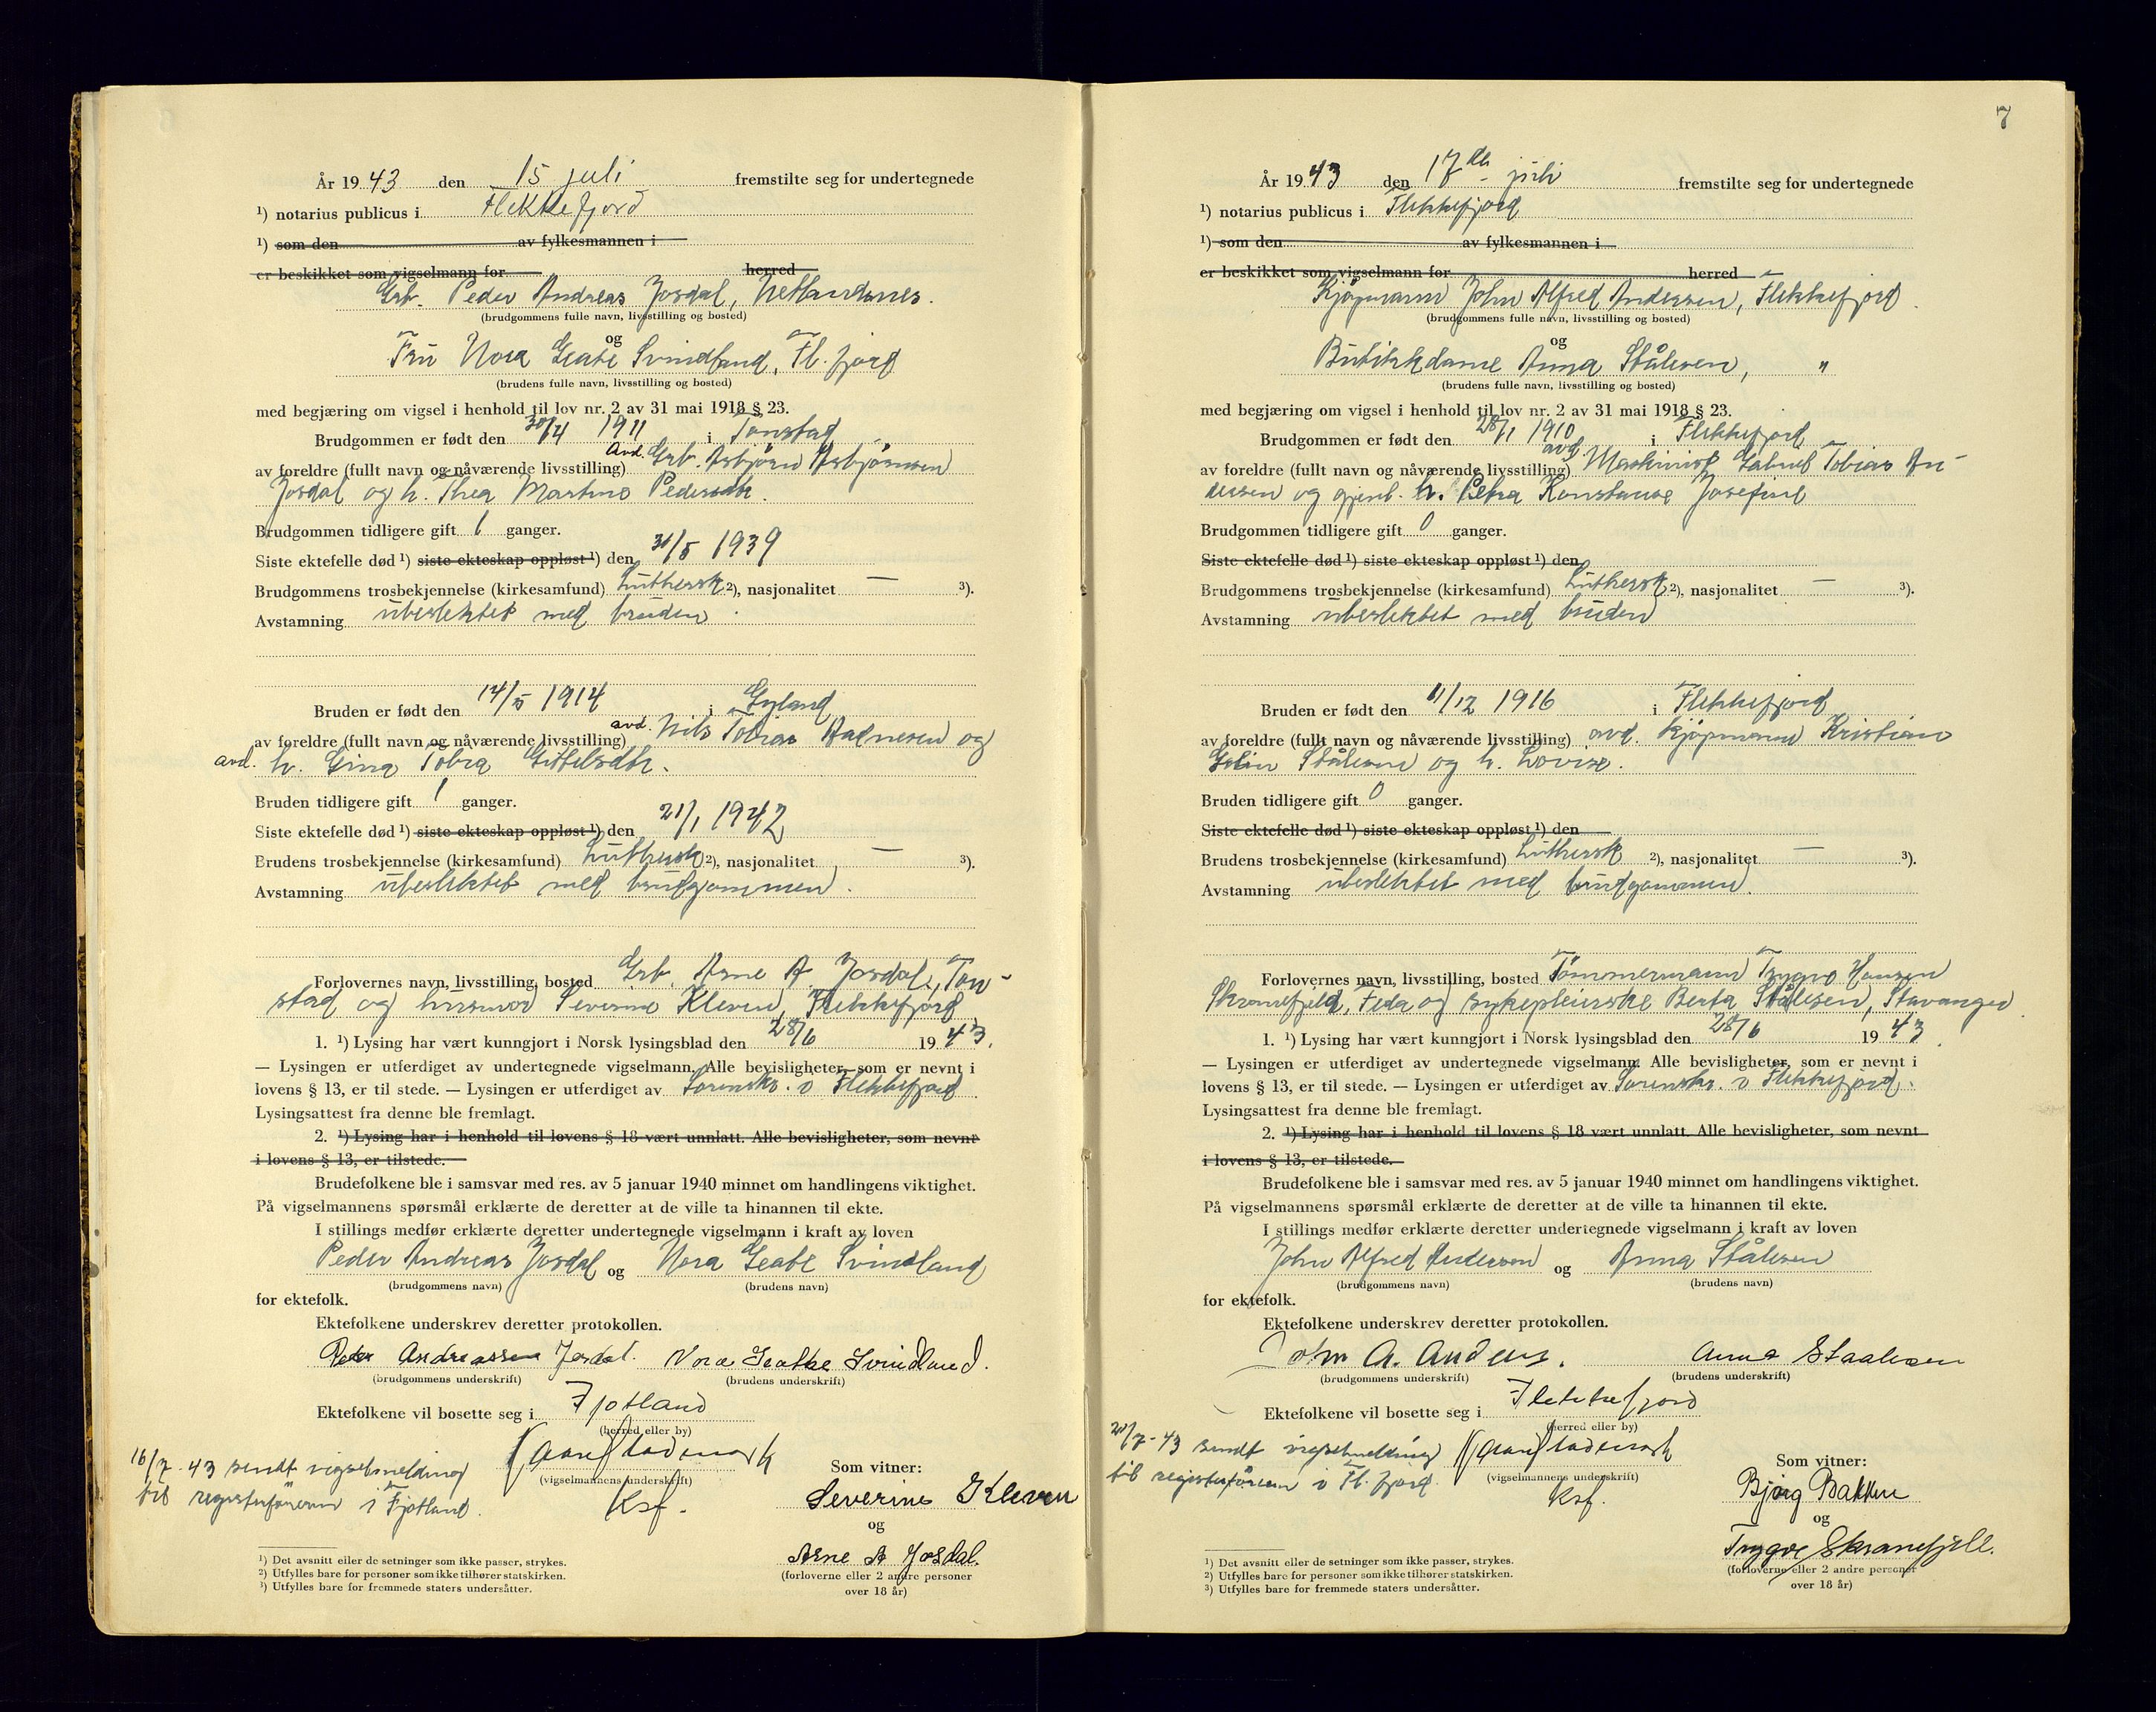 År 1943 den 15 juli fremstilte seg for undertegnede
¹) notarius publicus i Flekkefjord
¹) som den av fylkesmannen i
er beskikket som vigselmann for herred
Grb. Peder Andreas Josdal, Netlandsnes.
(brudgommens fulle navn, livsstilling og bosted)
og
Fru Nora Geate Svindland, Fl.fjord
(brudens fulle navn, livsstilling og bosted)
med begjæring om vigsel i henhold til lov nr. 2 av 31 mai 1918 § 23.
Brudgommen er født den 30/4 1911 i Tonstad
av foreldre (fullt navn og nåværende livsstilling) avd. Grb. Asbjörn Asbjörnsen
Josdal og h. Thea Martine Pedersdtr.
Brudgommen tidligere gift 1 ganger.
Siste ektefelle død ¹) siste ekteskap oppløst ¹) den 31/5 1939
Brudgommens trosbekjennelse (kirkesamfund) Luthersk ²), nasjonalitet — ³).
Avstamning ubeslektet med bruden.
Bruden er født den 14/5 1914 i Gyland
av foreldre (fullt navn og nåværende livsstilling) avd. Nils Tobias Aadnesen og
avd. h. Gina Tobia Gittelsdtr.
Bruden tidligere gift 1 ganger.
Siste ektefelle død ¹) siste ekteskap oppløst ¹) den 21/1 1942
Brudens trosbekjennelse (kirkesamfund) Luthersk ²), nasjonalitet — ³).
Avstamning ubeslektet med brudgommen.
Forlovernes navn, livsstilling, bosted Grb. Arne A. Josdal, Ton-
stad og husmor Severine Kleven, Flekkefjord
1. ¹) Lysing har vært kunngjort i Norsk lysingsblad den 28/6 1943.
— Lysingen er utferdiget av undertegnede vigselmann. Alle bevisligheter, som er nevnt i
lovens § 13, er til stede. — Lysingen er utferdiget av Sorenskr. i Flekkefjord
Lysingsattest fra denne ble fremlagt.
2. ¹) Lysing har i henhold til lovens § 18 vært unnlatt. Alle bevisligheter, som nevnt
i lovens § 13, er tilstede.
Brudefolkene ble i samsvar med res. av 5 januar 1940 minnet om handlingens viktighet.
På vigselmannens spørsmål erklærte de deretter at de ville ta hinannen til ekte.
I stillings medfør erklærte deretter undertegnede vigselmann i kraft av loven
Peder Andreas Josdal og Nora Geate Svindland
(brudgommens navn) (brudens navn)
for ektefolk.
Ektefolkene underskrev deretter protokollen.
Peder Andreassen Josdal. Nora Geathe Svindland.
(brudgommens underskrift) (brudens underskrift)
Ektefolkene vil bosette seg i Fjotland
(herred eller by)
16/7-43 sendt vigselmelding
til registerföreren i Fjotland.
(vigselmannens underskrift)
Ksf.
Som vitner:
Severine Kleven
og
Arne A Josdal.
(forloverne eller 2 andre personer
over 18 år)
¹) Det avsnitt eller de setninger som ikke passer, strykes.
²) Utfylles bare for personer som ikke tilhører statskirken.
³) Utfylles bare for fremmede staters undersåtter.
7
År 1943 den 17de juli fremstilte seg for undertegnede
¹) notarius publicus i Flekkefjord
¹) som den av fylkesmannen i
er beskikket som vigselmann for herred
Kjöpmann John Alfred Andersen, Flekkefjord.
(brudgommens fulle navn, livsstilling og bosted)
og
Butikkdame Anna Stålesen, "
(brudens fulle navn, livsstilling og bosted)
med begjæring om vigsel i henhold til lov nr. 2 av 31 mai 1918 § 23.
Brudgommen er født den 28/1 1910 i Flekkefjord
av foreldre (fullt navn og nåværende livsstilling) avd. Maskinist Gabriel Tobias An-
dersen og gjenl. h. Petra Konstanse Josefine
Brudgommen tidligere gift 0 ganger.
Siste ektefelle død ¹) siste ekteskap oppløst ¹) den
Brudgommens trosbekjennelse (kirkesamfund) Luthersk ²), nasjonalitet — ³).
Avstamning ubeslektet med bruden
Bruden er født den 11/12 1916 i Flekkefjord
av foreldre (fullt navn og nåværende livsstilling) avd. Kjöpmann Kristian
Stålesen og h. Lovise.
Bruden tidligere gift 0 ganger.
Siste ektefelle død ¹) siste ekteskap oppløst ¹) den
Brudens trosbekjennelse (kirkesamfund) Luthersk ²), nasjonalitet — ³).
Avstamning ubeslektet med brudgommen.
Forlovernes navn, livsstilling, bosted Tömmermann Trygve Hansen
Skranefjeld, Feda og sykepleierske Berta Stålesen, Stavanger
1. ¹) Lysing har vært kunngjort i Norsk lysingsblad den 28/6 1943.
— Lysingen er utferdiget av undertegnede vigselmann. Alle bevisligheter, som er nevnt i
lovens § 13, er til stede. — Lysingen er utferdiget av Sorenskr. i Flekkefjord.
Lysingsattest fra denne ble fremlagt.
2. ¹) Lysing har i henhold til lovens § 18 vært unnlatt. Alle bevisligheter, som nevnt
i lovens § 13, er tilstede.
Brudefolkene ble i samsvar med res. av 5 januar 1940 minnet om handlingens viktighet.
På vigselmannens spørsmål erklærte de deretter at de ville ta hinannen til ekte.
I stillings medfør erklærte deretter undertegnede vigselmann i kraft av loven
John Alfred Andersen og Anna Stålesen
(brudgommens navn) (brudens navn)
for ektefolk.
Ektefolkene underskrev deretter protokollen.
John A. Anders. Anna Staalesen
(brudgommens underskrift) (brudens underskrift)
Ektefolkene vil bosette seg i Flekkefjord
(herred eller by)
20/7-43 sendt vigselmelding
til registerföreren i Fl.fjord.
(vigselmannens underskrift)
Ksf.
Som vitner:
Bjørg Bakken
og
Trygve Skranefjell.
(forloverne eller 2 andre personer
over 18 år)
¹) Det avsnitt eller de setninger som ikke passer, strykes.
²) Utfylles bare for personer som ikke tilhører statskirken.
³) Utfylles bare for fremmede staters undersåtter.